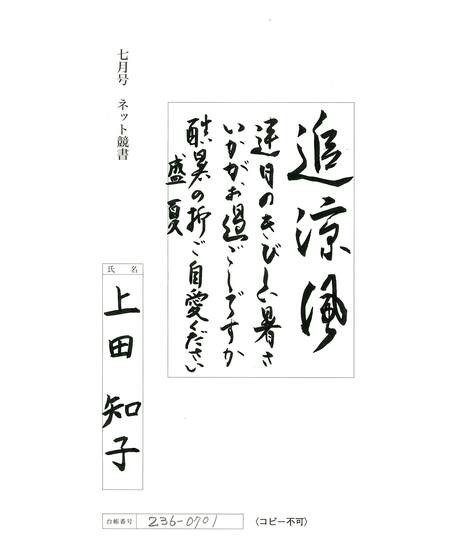 七月号　ネット競書
追涼風
連日のきびしい暑さ
いかがお過ごしですか
酷暑の折ご自愛ください
盛夏
氏名
上田知子
台帳番号 236-0701
(コピー不可)